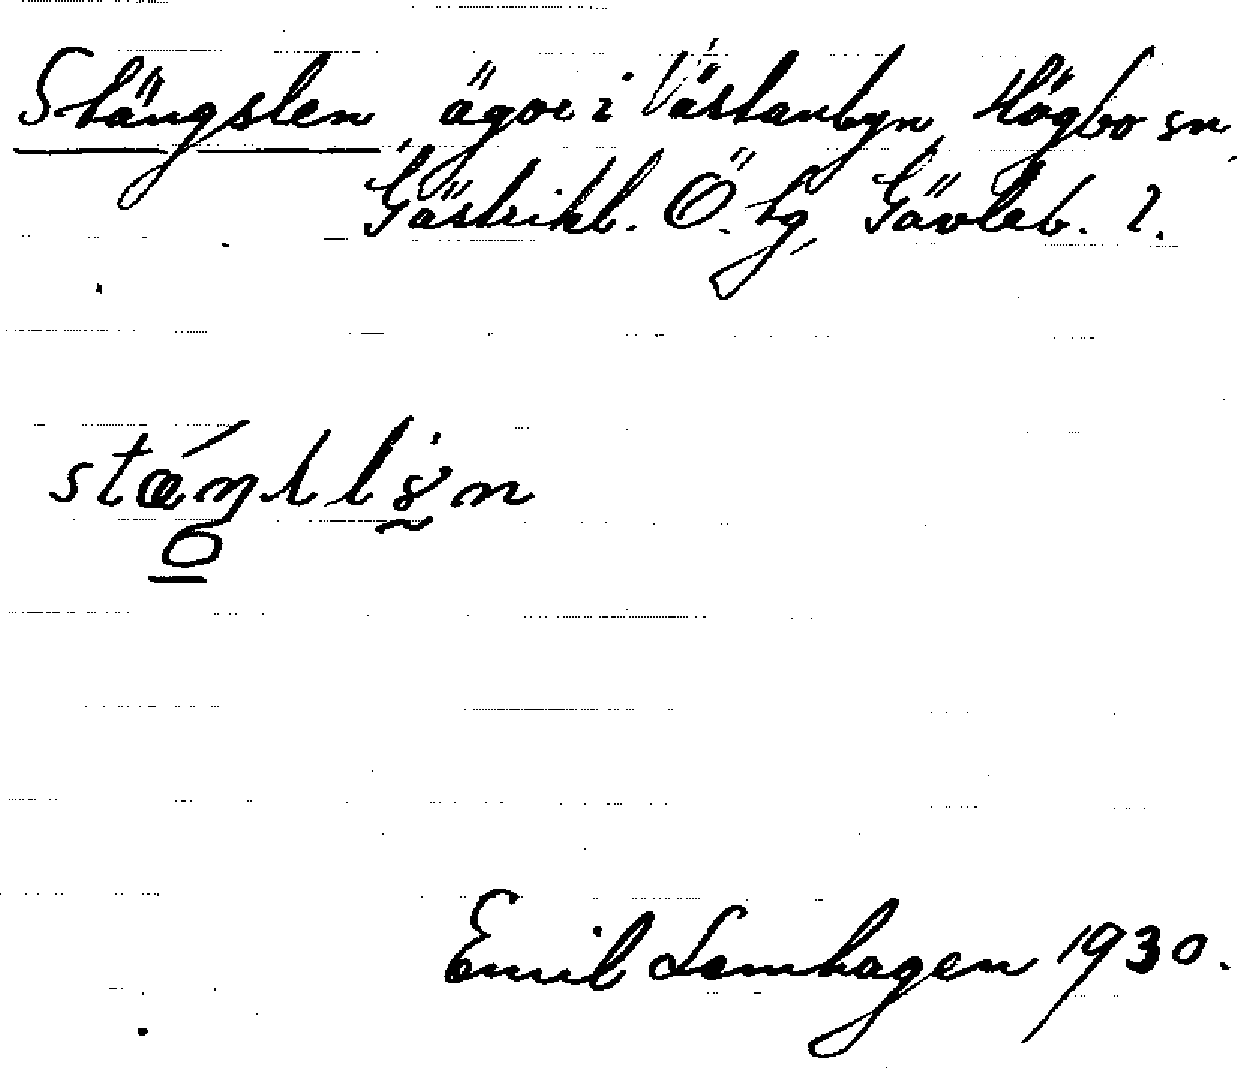 Stängslen ägor i Västanbyn, Högbo sn,
Gästrikl. Ö. tg, Gävleb. l.
Emil Lamhagen 1930.